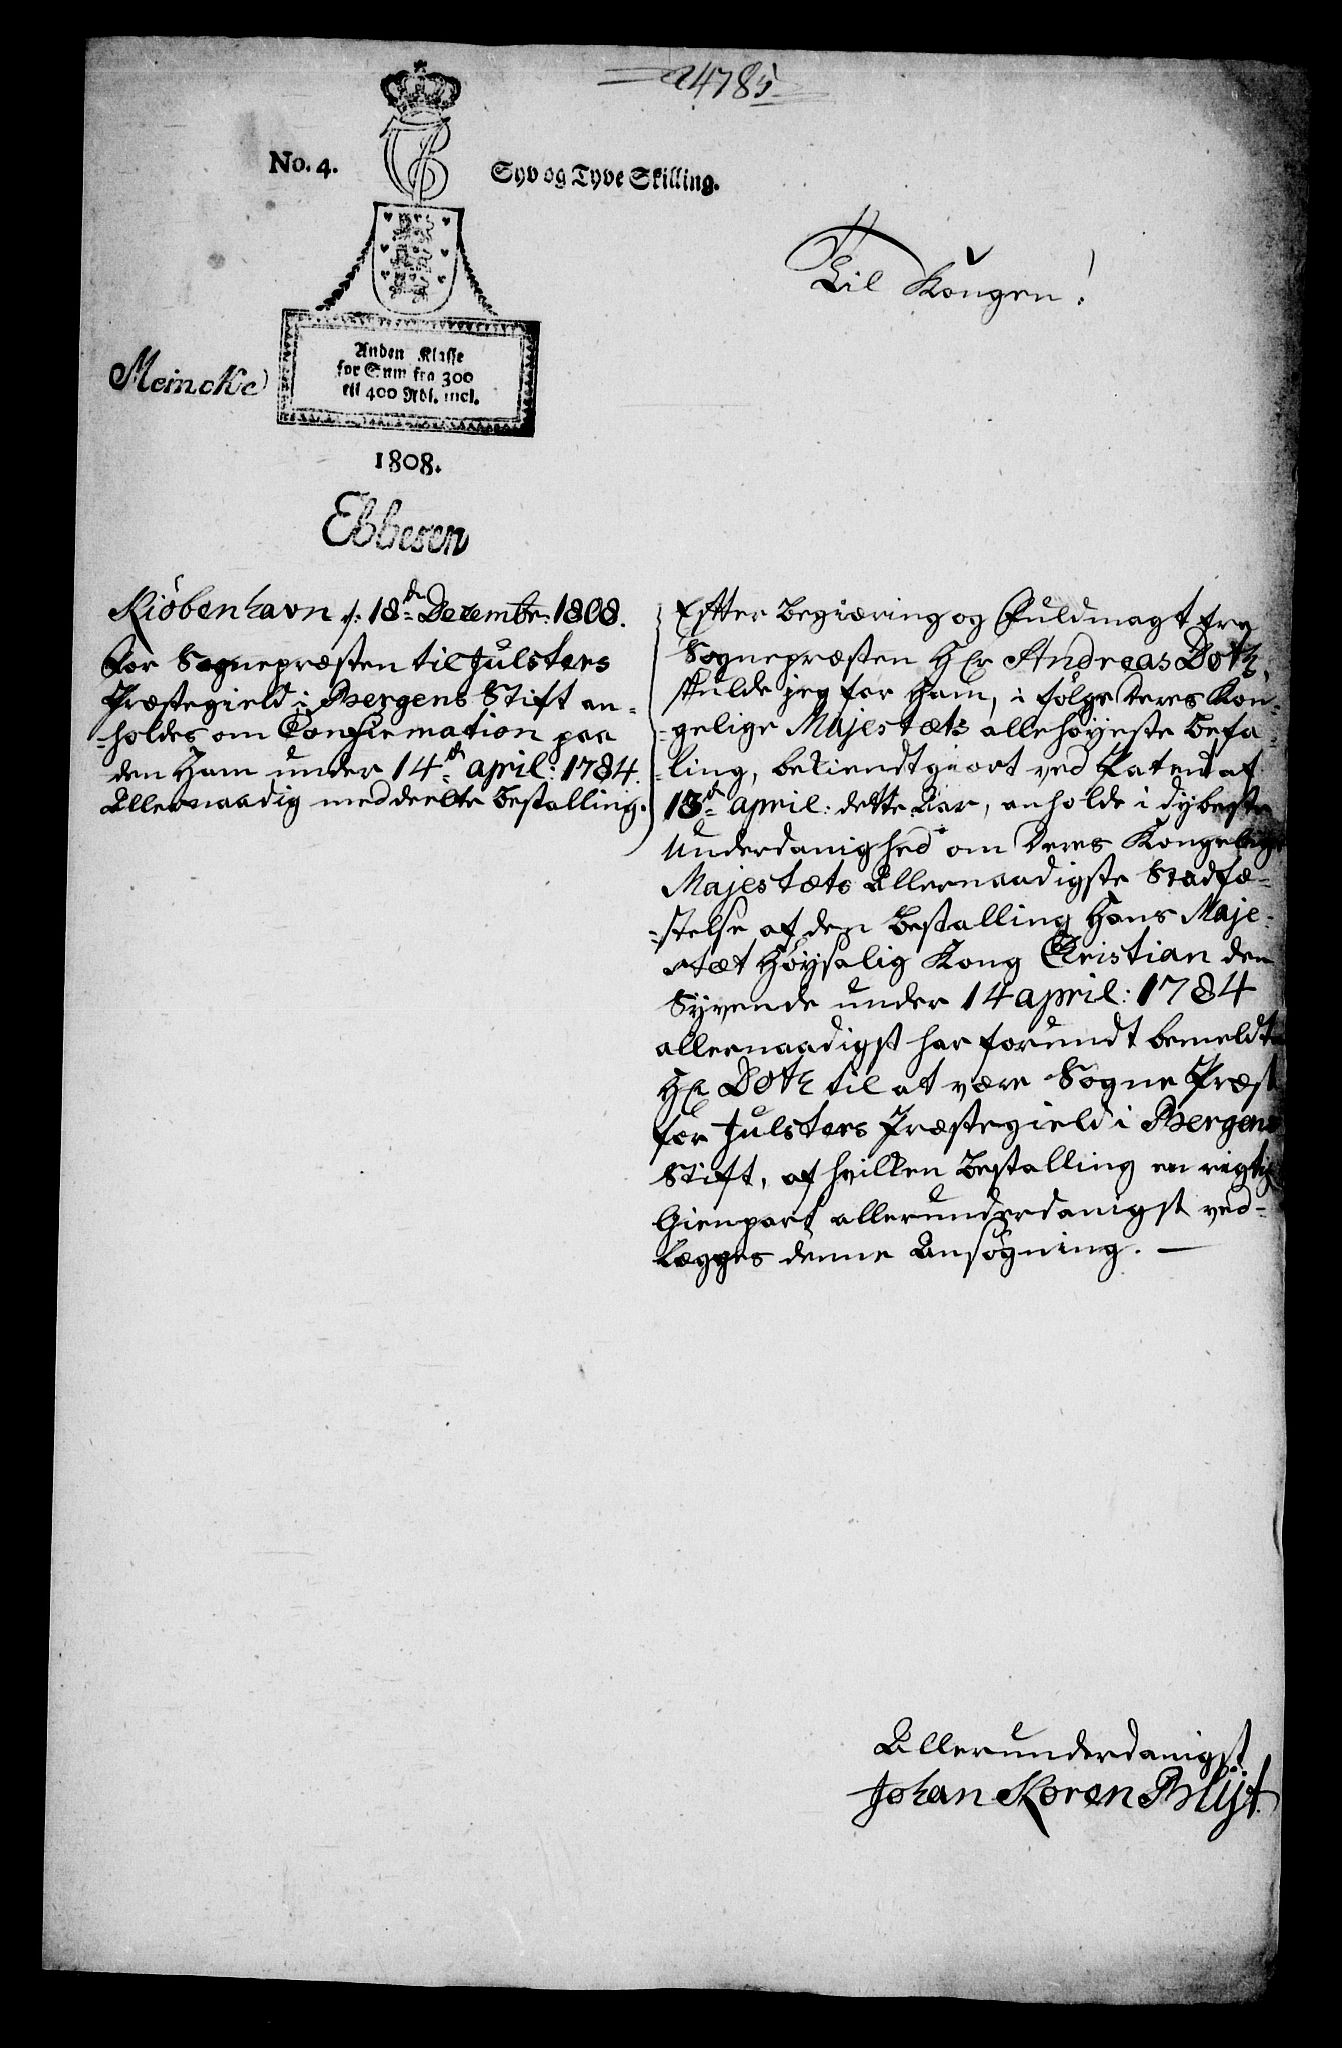 24785
No. 4.
Syv og Tyve Skilling.
Til Kongen!
Anden Klasse
for Sum fra 300
til 400 Rdl. incl.
Meincke
1808.
Ebbesen
Kiöbenhavn d: 18de Decembr: 1808.
For Sognepræsten til Julsters
Præstegield i Bergens Stift an-
-holdes om Confirmation paa
den Ham under 14de april: 1784.
Allernaadig meddeelte Bestalling.
Efter Begiæring og Fuldmagt fra
Sognepræsten Hr Andreas Døtz,
skulde jeg for Ham, i følge Deres Kon-
-gelige Majestæts allehøyeste Befa-
-ling, bekiendtgiort ved Patent af
13de april: dette Aar, anholde i dybeste
Underdanighed om Deres Kongelige
Majestæts Allernaadigste Stadfæ-
-stelse af den Bestalling Hans Maje-
stæt Høysalig Kong Christian den
Syvende under 14 april: 1784
allernaadigst har forundt bemeldte
Hr Døtz til at være Sogne Præst
for Julsters Præstegield i Bergens
Stift, af hvilken Bestalling en rigtig
Gienpart allerunderdanigst ved-
lægges denne Ansøgning. —
Allerunderdanigst
Johan Koren Blijt.